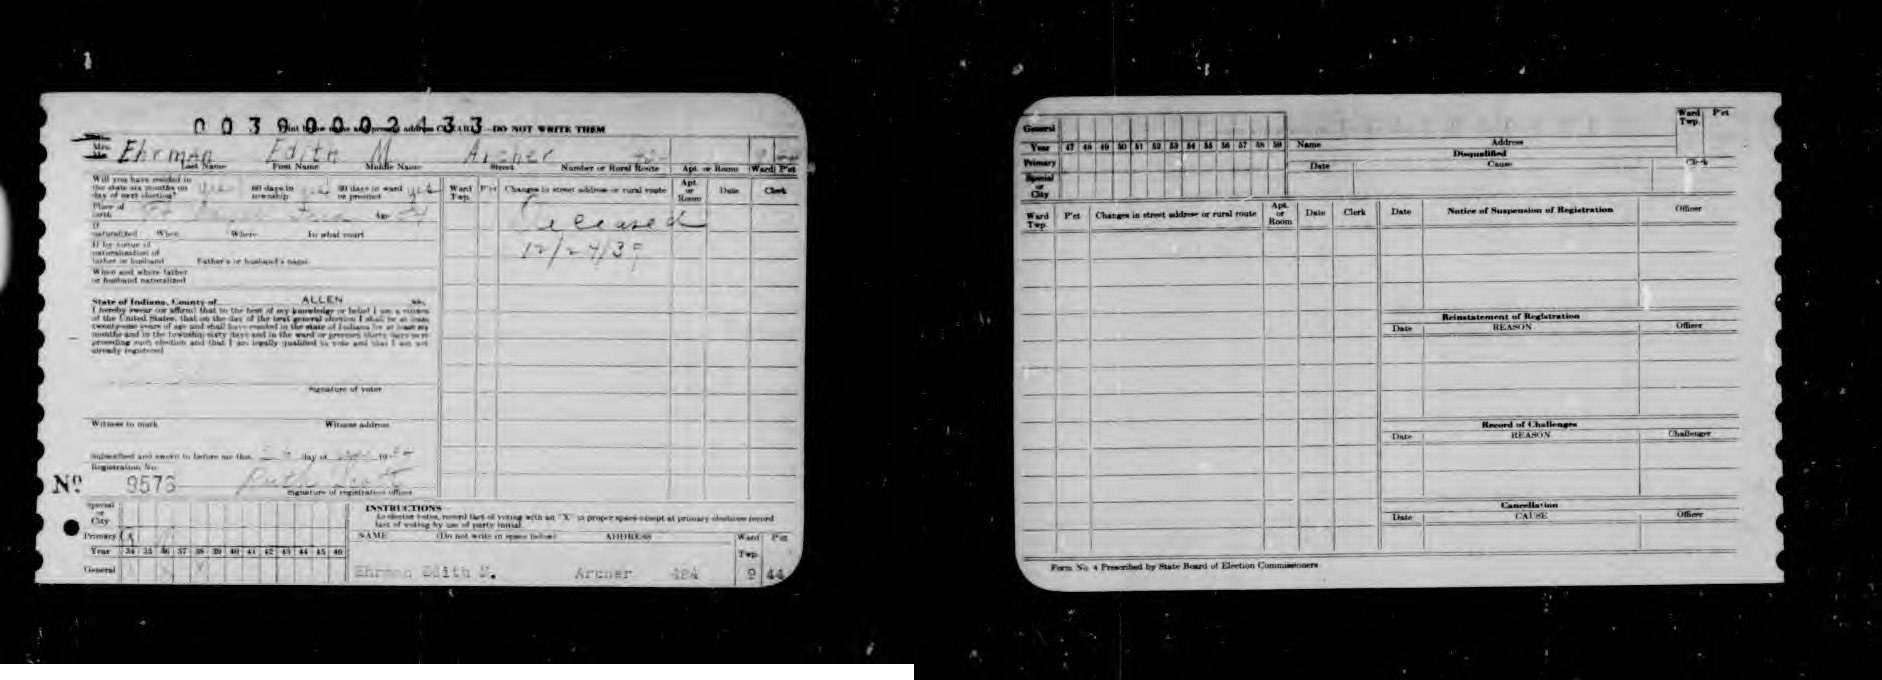 00390002433
Print below name and present address CLEARLY—DO NOT WRITE THEM
Mrs. Ehrman Edith M Archer
Last Name First Name Middle Name Street Number or Rural Route Apt. or Room Ward P'ct
Will you have resided in
the state six months on
day of next election? yes 60 days in township yes 30 days in ward or precinct yes
Ward Twp. P'ct Changes in street address or rural route Apt. or Room Date Clerk
Place of birth Age
If naturalized When Where In what court
12/24/39
If by virtue of
naturalization of
father or husband Father's or husband's name
When and where father
or husband naturalized
State of Indiana, County of ALLEN ss.
I hereby swear (or affirm) that to the best of my knowledge or belief I am a citizen
of the United States, that on the day of the next general election I shall be at least
twenty-one years of age and shall have resided in the state of Indiana for at least six
months and in the township sixty days and in the ward or precinct thirty days next
preceding such election and that I am legally qualified to vote and that I am not
already registered
Signature of voter
Witness to mark Witness address
Subscribed and sworn to before me this day of 19
Registration No.
Nº 9573 Ruth Scott
Signature of registration officer
Special or City
Primary
Year 34 35 36 37 38 39 40 41 42 43 44 45 46
General
INSTRUCTIONS—
To election board, record fact of voting with an "X" in proper space except at primary elections record
fact of voting by use of party initial.
NAME (Do not write in space below) ADDRESS Ward Twp. P'ct
Ehrman Edith M. Archer 484 9 44
General
Year 47 48 49 50 51 52 53 54 55 56 57 58 59
Primary
Special or City
Name Address Ward Twp. P'ct
Disqualified
Date Cause Clerk
Ward Twp. P'ct Changes in street address or rural route Apt. or Room Date Clerk
Date Notice of Suspension of Registration Officer
Reinstatement of Registration
Date REASON Officer
Record of Challenges
Date REASON Challenger
Cancellation
Date CAUSE Officer
Form No. 4 Prescribed by State Board of Election Commissioners